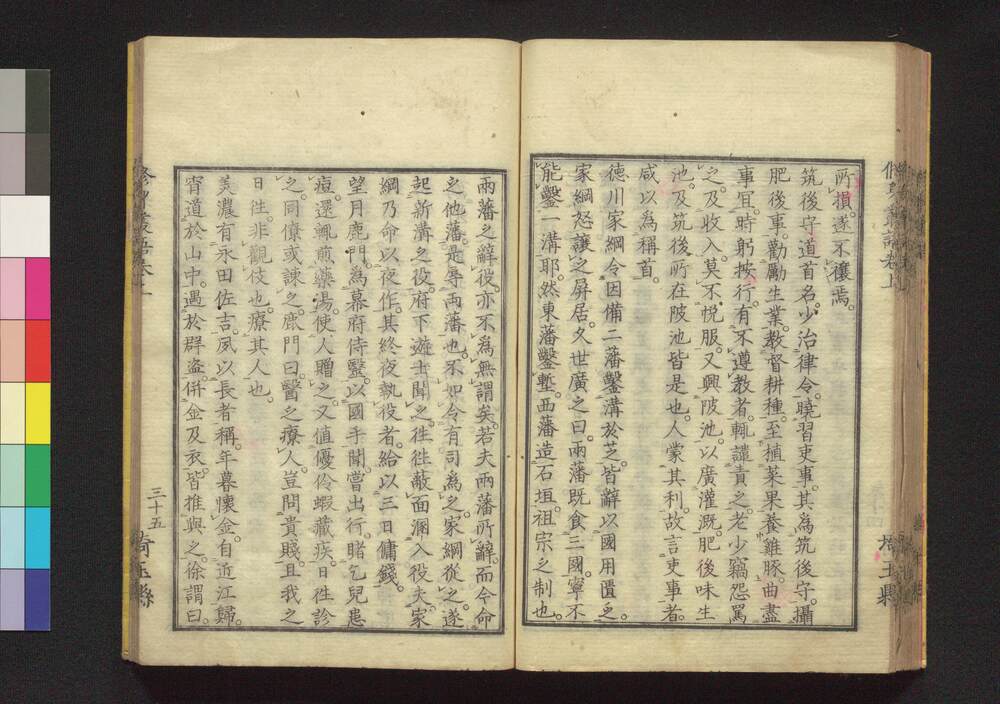 所損。遂不穰焉。
筑後守道首名。少治律令。曉習吏事。其為筑後守。攝
肥後事。勸勵生業。教督耕種。至植菜果養雞豚。曲盡
事冝。時躬按行。有不遵教者。輒譴責之。老少竊怨罵
之。及收入。莫不悅服。又興陂池。以廣灌溉。肥後味生
池。及筑後所在陂池皆是也。人蒙其利。故言吏事者。
咸以為稱首。
德川家綱令因備二藩鑿溝於芝。皆辭以國用匱乏。
家綱怒讓之屏居。久世廣之曰。兩藩既食三國。寧不
能鑿一溝耶。然東藩鑿塹。西藩造石垣。祖宗之制也。
兩藩之辭役。亦不為無謂矣。若夫兩藩所辭。而今命
之他藩。是辱兩藩也。不如令有司為之。家綱從之。遂
起新溝之役。府下遊士聞之。往往蔽面溷入役夫。家
綱乃命以夜作。其終夜執役者。給以三日傭錢。
望月鹿門。為幕府侍醫。以國手聞。嘗出行。睹乞兒患
痘。還輒煎藥湯。使人贈之。又值優伶蝦藏疾。日往診
之。同僚或諫之。鹿門曰。醫之療人。豈問貴賤。且我之
日往。非觀伎也。療其人也。
美濃有永田佐吉。夙以長者稱。年暮懷金。自近江歸。
宵道於山中。遇於群盗。併金及衣。皆推與之。徐謂曰。
三十五
埼玉縣